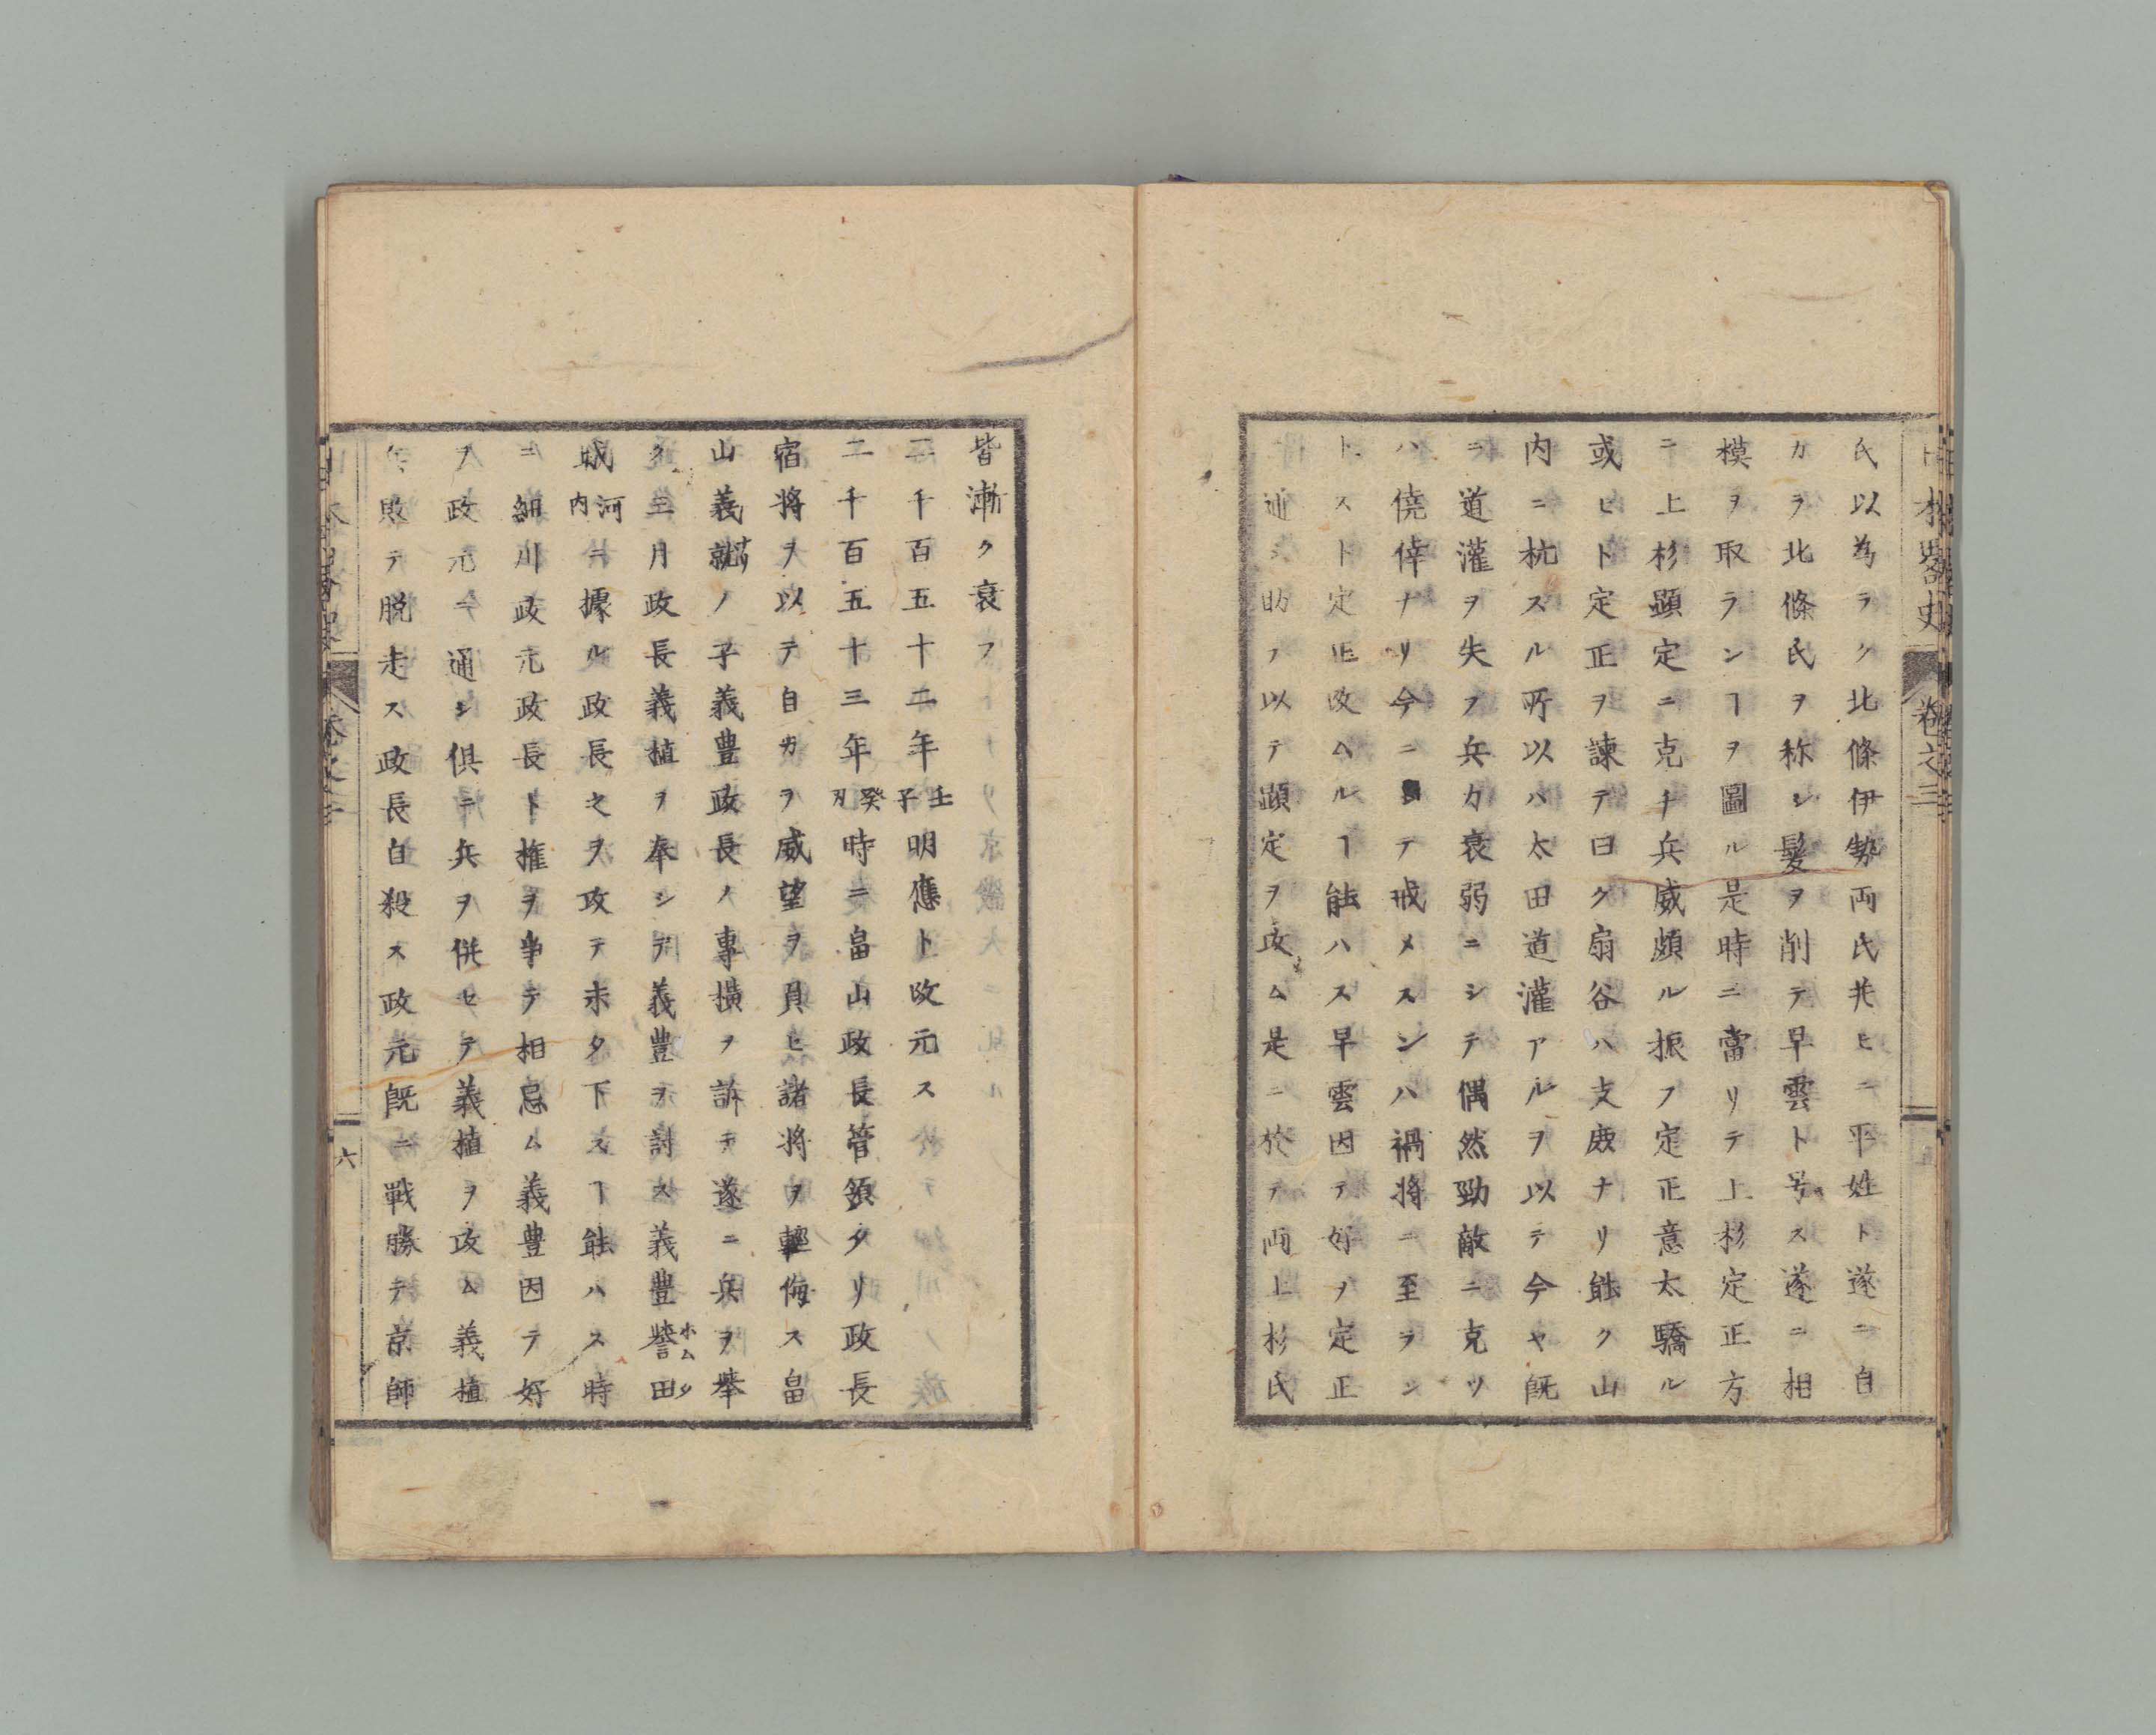 日本畧史 卷之三
氏以為ラク北條伊勢両氏共ヒニ平姓ト遂ニ自
カラ北條氏ヲ称シ髮ヲ削テ早雲ト号ス遂ニ相
模ヲ取ランヿヲ圖ル是時ニ當リテ上杉定正方
ニ上杉顯定ニ克チ兵威頗ル振フ定正意太驕ル
或ヒト定正ヲ諫テ曰ク扇谷ハ支庻ナリ能ク山
内ニ杭スル所以ハ太田道灌アルヲ以テ今ヤ既
ニ道灌ヲ失ヲ兵力衰弱ニシテ偶然勁敵ニ克ツ
ハ僥倖ナリ今ニテ戒メスンハ禍将ニ至ヲン
トスト定正改ムルヿ能ハス早雲因テ好ヲ定正
ニ通シ助ヲ以テ顯定ヲ攻ム是ニ於テ両上杉氏
皆漸ク衰フ
二千百五十二年壬子明應ト改元ス
二千百五十三年癸丑時ニ畠山政長管領タリ政長
宿将ヲ以テ自カラ威望ヲ負ヒ諸将ヲ輕侮ス畠
山義就ノ子義豊政長ノ專横ヲ訴テ遂ニ兵ヲ舉
ク三月政長義植ヲ奉シテ義豊ヲ討ス義豊譽田ホムタ
城河内ニ據ル政長之ヲ攻テ未タ下スヿ能ハス時
ニ細川政元政長ト権ヲ争テ相忌ム義豊因テ好
ヲ政元ニ通シ倶ニ兵ヲ併セテ義植ヲ攻ム義植
敗テ脱走ス政長自殺ス政元既ニ戦勝テ京師
六